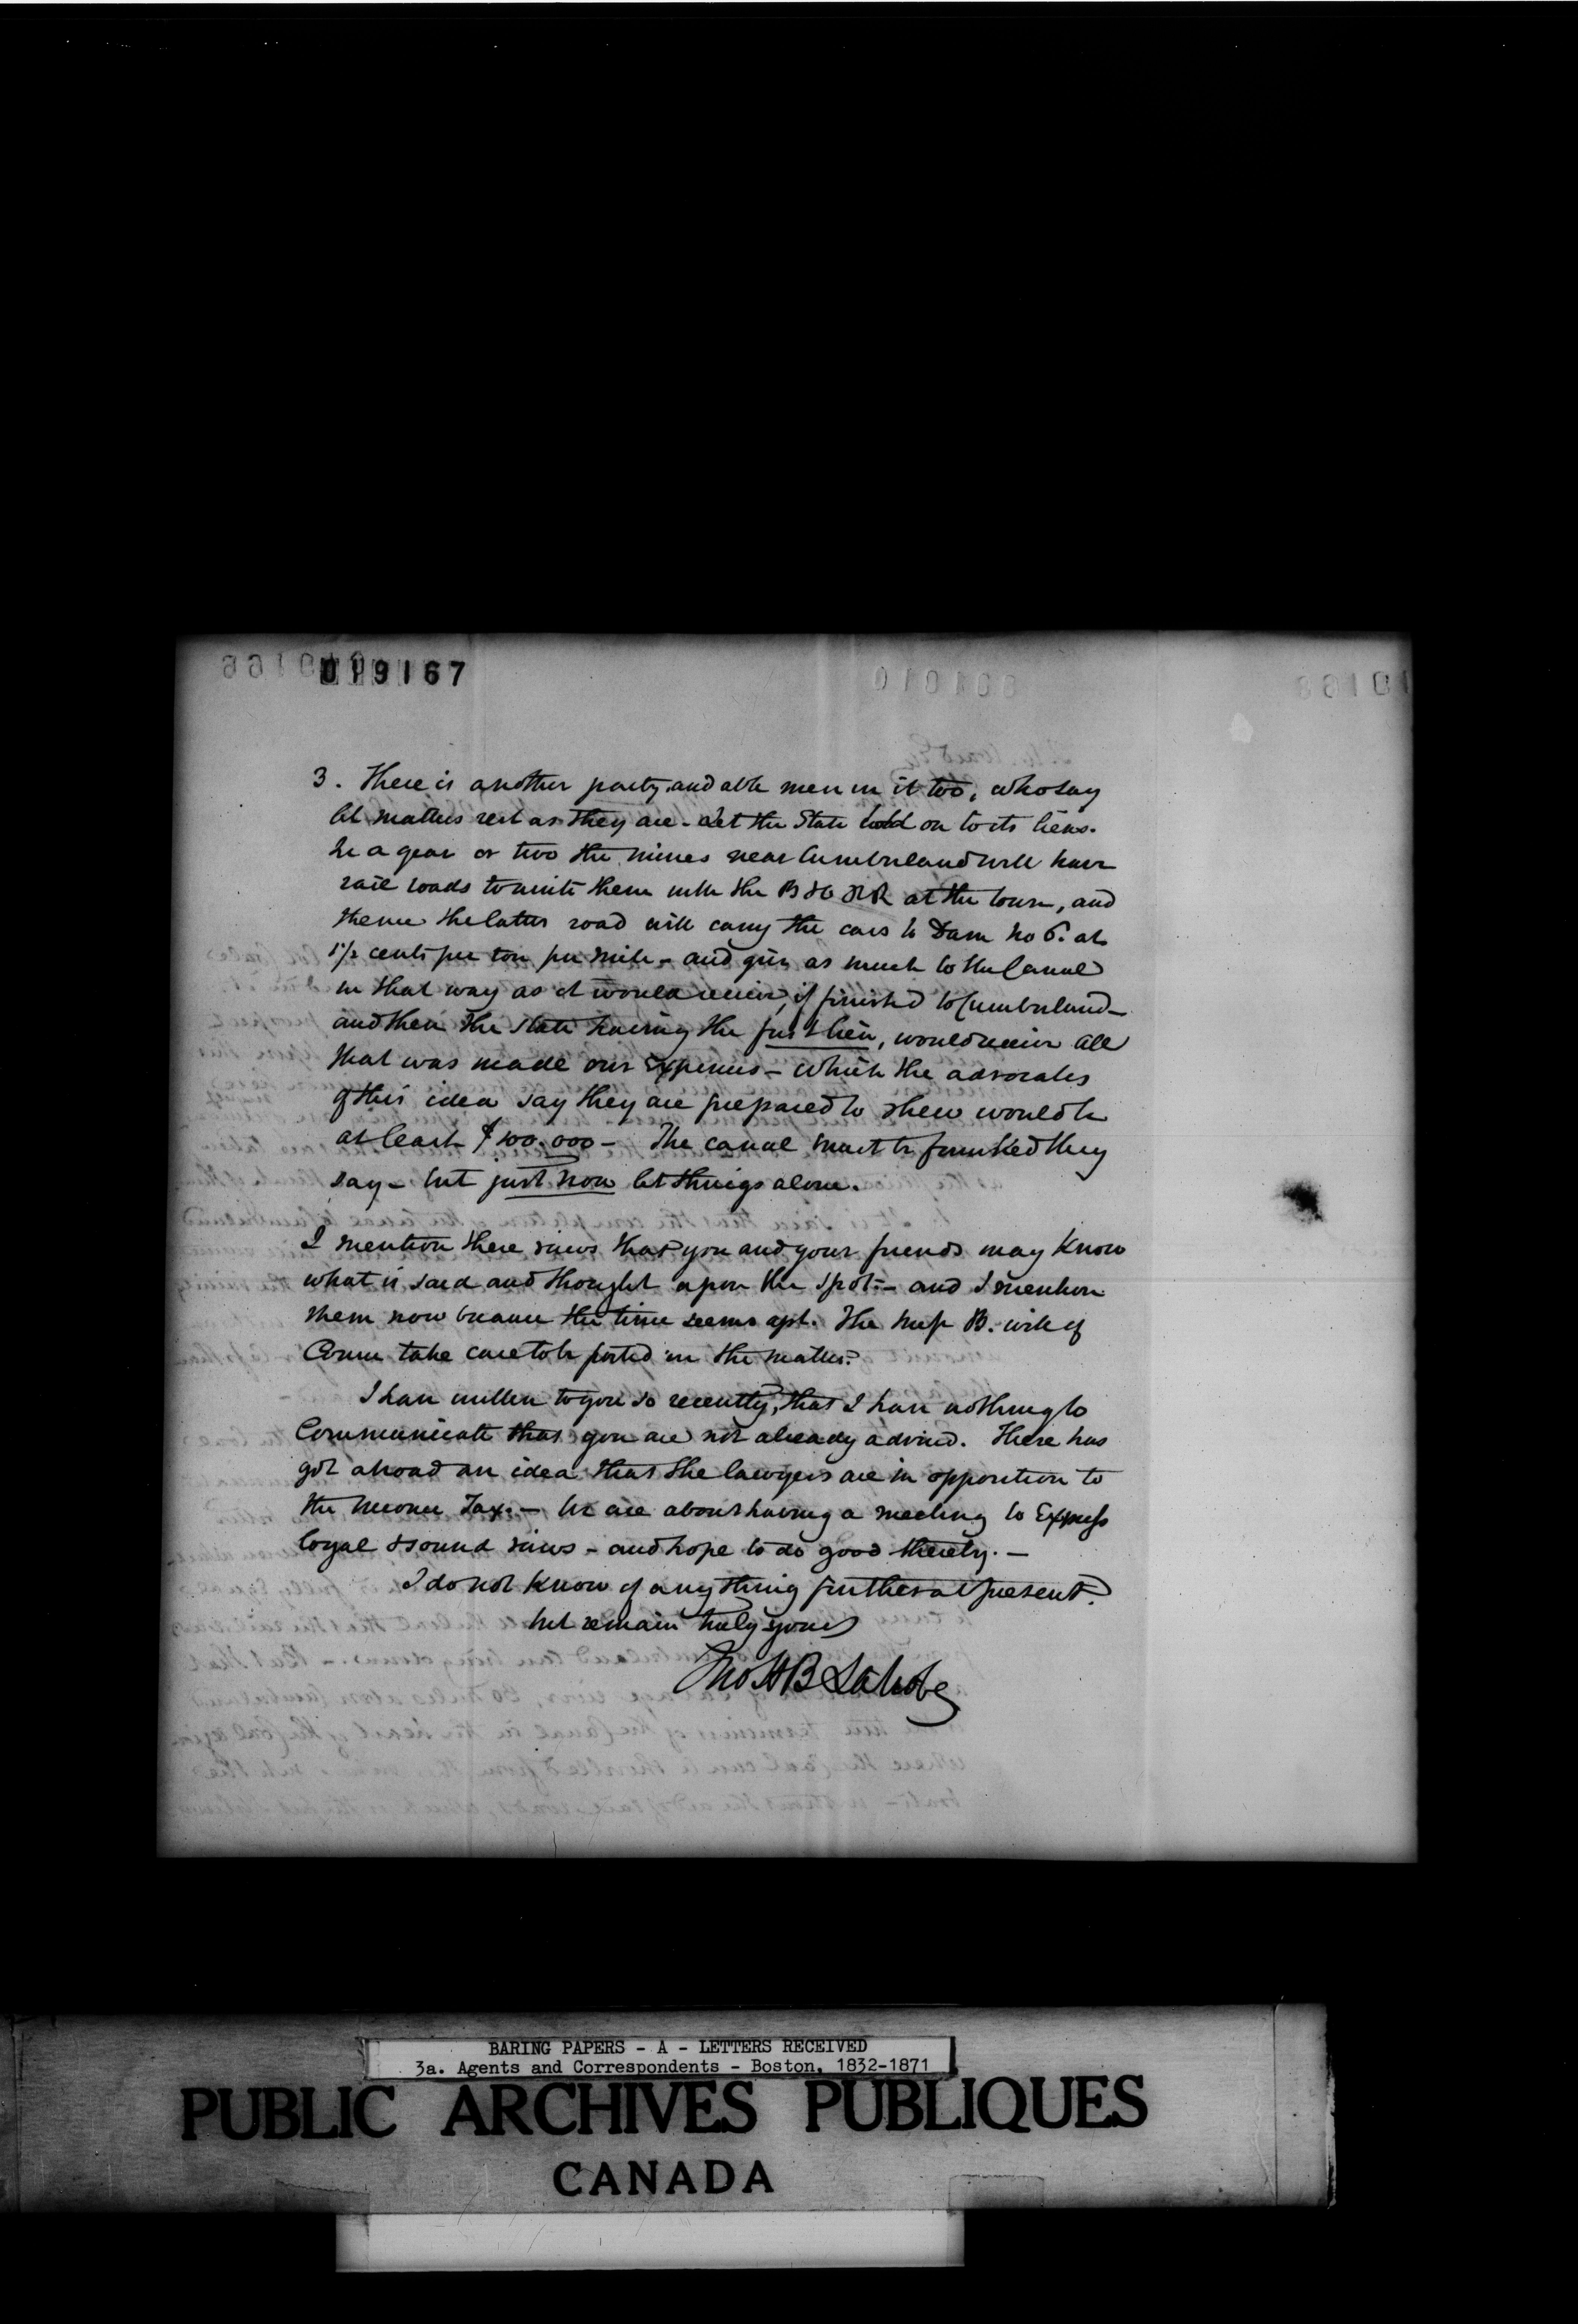 019167
3. There is another party, and able men in it too, who say
let matters rest as they are - Let the State hold on to its liens.
In a year or two the mines near Cumberland will have
rail roads to unite them with the B & O RR at the town, and
thence the latter road will carry the cars to Dam No 6. at
1 1/2 cents per ton per mile - and give as much to the Canal
in that way as it would receive, if finished to Cumberland -
and then the State having the first lien, would receive all
that was made over expenses - which the advocates
of this idea say they are prepared to shew would be
at least $100,000 - The canal must be finished they
say - but just now let things alone.
I mention these views that you and your friends may know
what is said and thought upon the spot - and I mention
them now because the time seems apt. The Messrs B. will of
Course take care to be posted in the matter.
I have written to you so recently, that I have nothing to
Communicate that you are not already advised. There has
got abroad an idea that the lawyers are in opposition to
the Income Tax. - We are about having a meeting to Express
loyal & sound views - and hope to do good thereby. -
I do not know of anything further at present.
but remain truly yours
Jno H B Latrobe
BARING PAPERS - A - LETTERS RECEIVED
3a. Agents and Correspondents - Boston, 1832-1871
PUBLIC ARCHIVES PUBLIQUES
CANADA